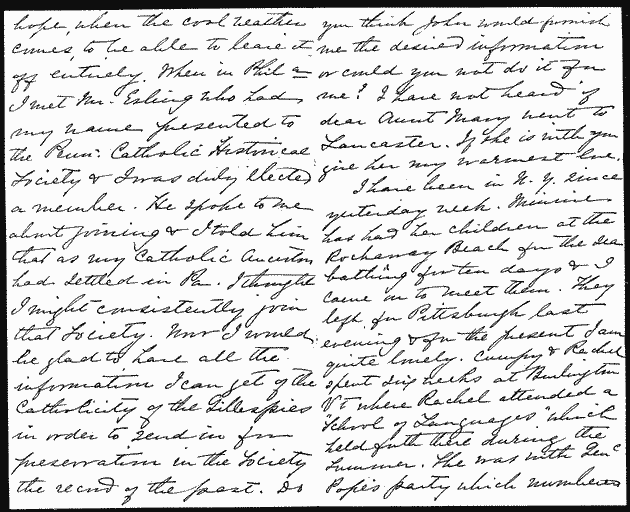 hope, when the cool weather
comes, to be able to leave it
off entirely. When in Phila
I met Mr. Esling who had
my name presented to
the Penn: Catholic Historical
Society & I was duly elected
a member. He spoke to me
about joining & I told him
that as my Catholic Ancestors
had settled in Pa. I thought
I might consistently join
that Society. Now I would
be glad to have all the
information I can get of the
Catholicity of the Gillespies
in order to send in for
preservation in the Society
the record of the past. Do
you think John would furnish
me the desired information
or could you not do it for
me? I have not heard if
dear Aunt Mary went to
Lancaster. If she is with you
give her my warmest love.
I have been in N. Y. since
yesterday week. Minnie
has had her children at the
Rockaway Beach for the sea
bathing for ten days & I
came on to meet them. They
left for Pittsburgh last
evening & for the present I am
quite lonely. Cumpy & Rachel
spent six weeks at Burlington
Vt where Rachel attended a
"School of Languages" which
held forth there during the
Summer. She was with Genl
Pope's party which numbered